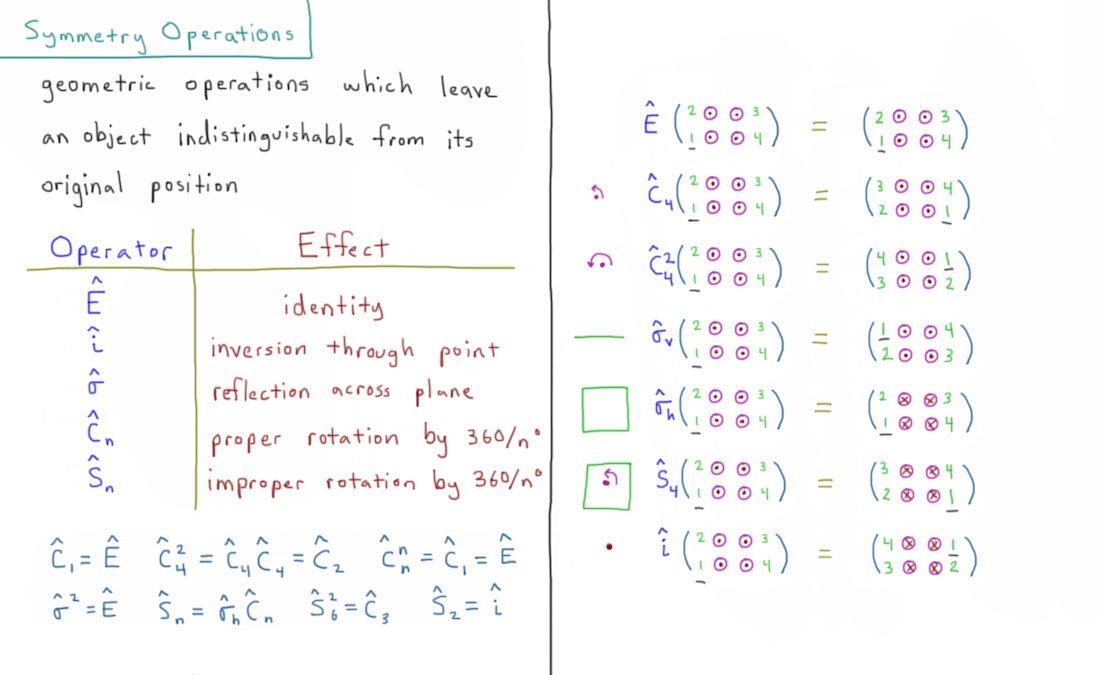 Symmetry Operations
geometric operations which leave
an object indistinguishable from its
original position
Operator Effect
Ê identity
î inversion through point
σ̂ reflection across plane
Ĉₙ proper rotation by 360/n°
Ŝₙ improper rotation by 360/n°
Ĉ₁ = Ê Ĉ₄² = Ĉ₄Ĉ₄ = Ĉ₂ Ĉₙⁿ = Ĉ₁ = Ê
σ̂² = Ê Ŝₙ = σ̂ₕĈₙ Ŝ₆² = Ĉ₃ Ŝ₂ = î
Ê (2 ⊙ ⊙ 3 = (2 ⊙ ⊙ 3
1 ⊙ ⊙ 4) 1 ⊙ ⊙ 4)
Ĉ₄ (2 ⊙ ⊙ 3 = (3 ⊙ ⊙ 4
1 ⊙ ⊙ 4) 2 ⊙ ⊙ 1)
Ĉ₄² (2 ⊙ ⊙ 3 = (4 ⊙ ⊙ 1
1 ⊙ ⊙ 4) 3 ⊙ ⊙ 2)
σ̂ᵥ (2 ⊙ ⊙ 3 = (1 ⊙ ⊙ 4
1 ⊙ ⊙ 4) 2 ⊙ ⊙ 3)
σ̂ₕ (2 ⊙ ⊙ 3 = (2 ⊗ ⊗ 3
1 ⊙ ⊙ 4) 1 ⊗ ⊗ 4)
Ŝ₄ (2 ⊙ ⊙ 3 = (3 ⊗ ⊗ 4
1 ⊙ ⊙ 4) 2 ⊗ ⊗ 1)
î (2 ⊙ ⊙ 3 = (4 ⊗ ⊗ 1
1 ⊙ ⊙ 4) 3 ⊗ ⊗ 2)